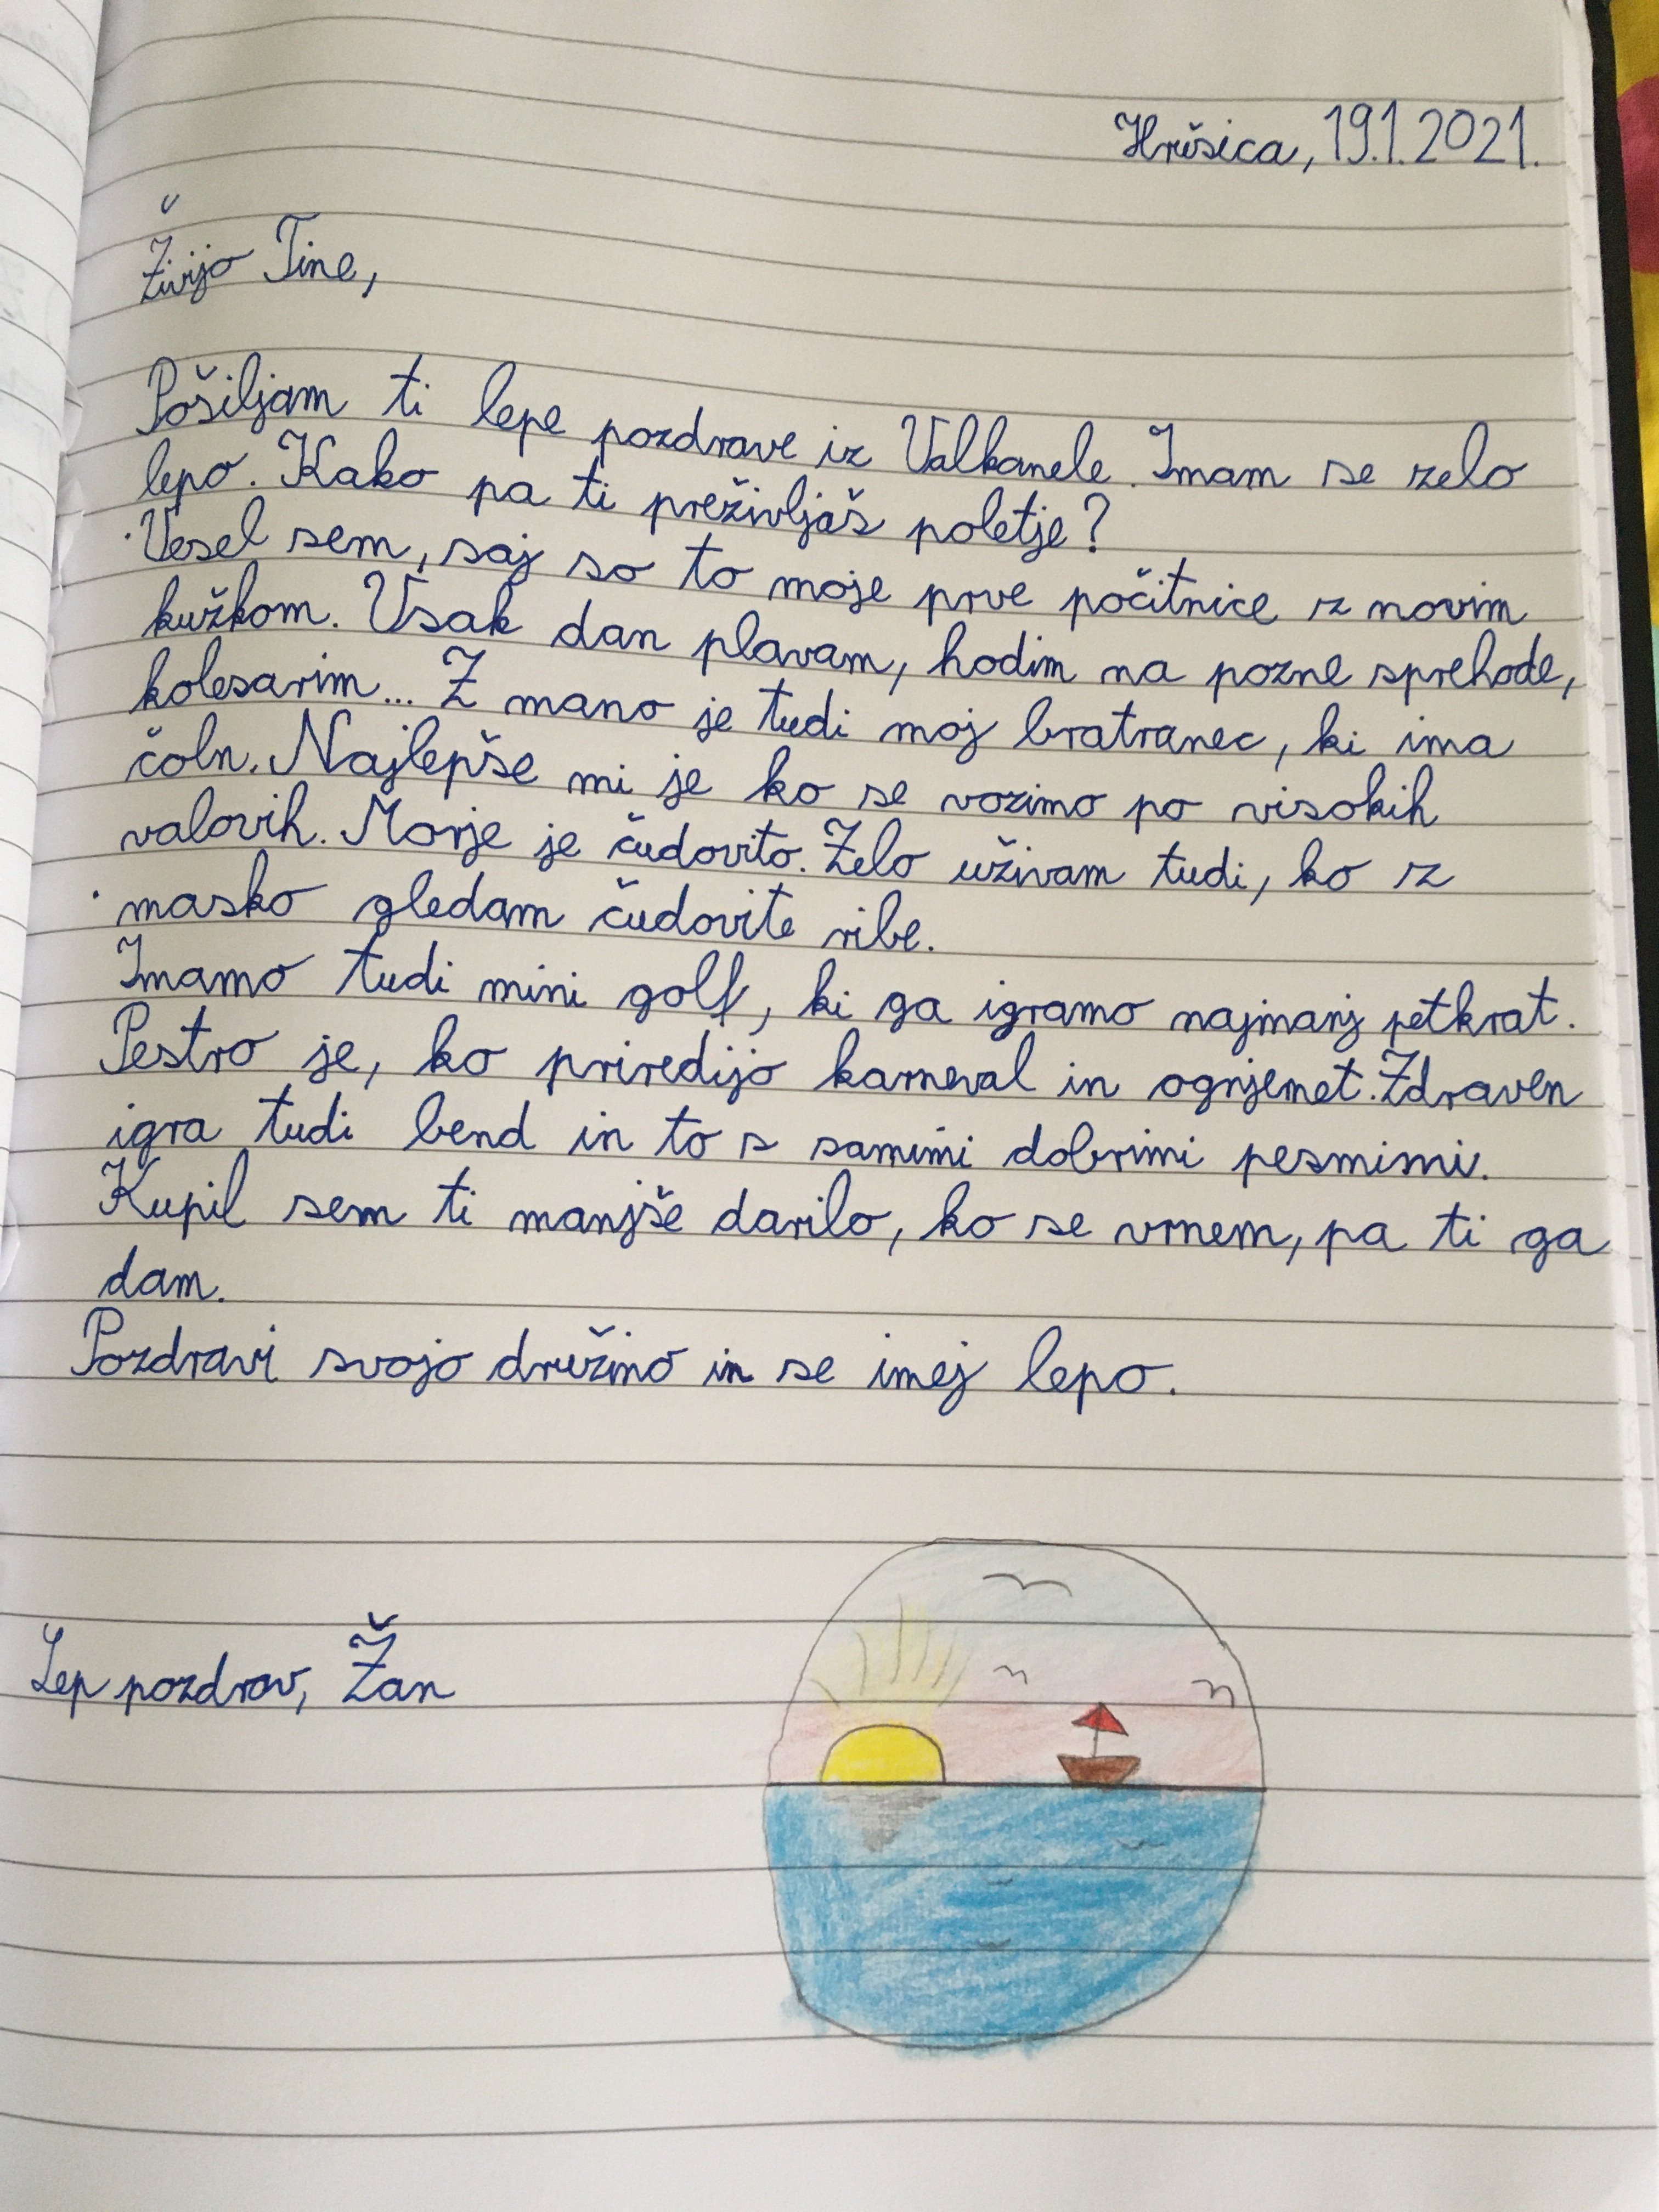 Hrušica, 19.1.2021.
Živijo Tine,
Pošiljam ti lepe pozdrave iz Valkanele. Imam se zelo
lepo. Kako pa ti preživljaš poletje?
Vesel sem, saj so to moje prve počitnice z novim
kužkom. Vsak dan plavam, hodim na pozne sprehode,
kolesarim... Z mano je tudi moj bratranec, ki ima
čoln. Najlepše mi je ko se vozimo po visokih
valovih. Morje je čudovito. Zelo uživam tudi, ko z
masko gledam čudovite ribe.
Imamo tudi mini golf, ki ga igramo najmanj petkrat.
Pestro je, ko priredijo karneval in ognjemet. Zdraven
igra tudi bend in to s samimi dobrimi pesmimi.
Kupil sem ti manjše darilo, ko se vrnem, pa ti ga
dam.
Pozdravi svojo družino in se imej lepo.
Lep pozdrav, Žan